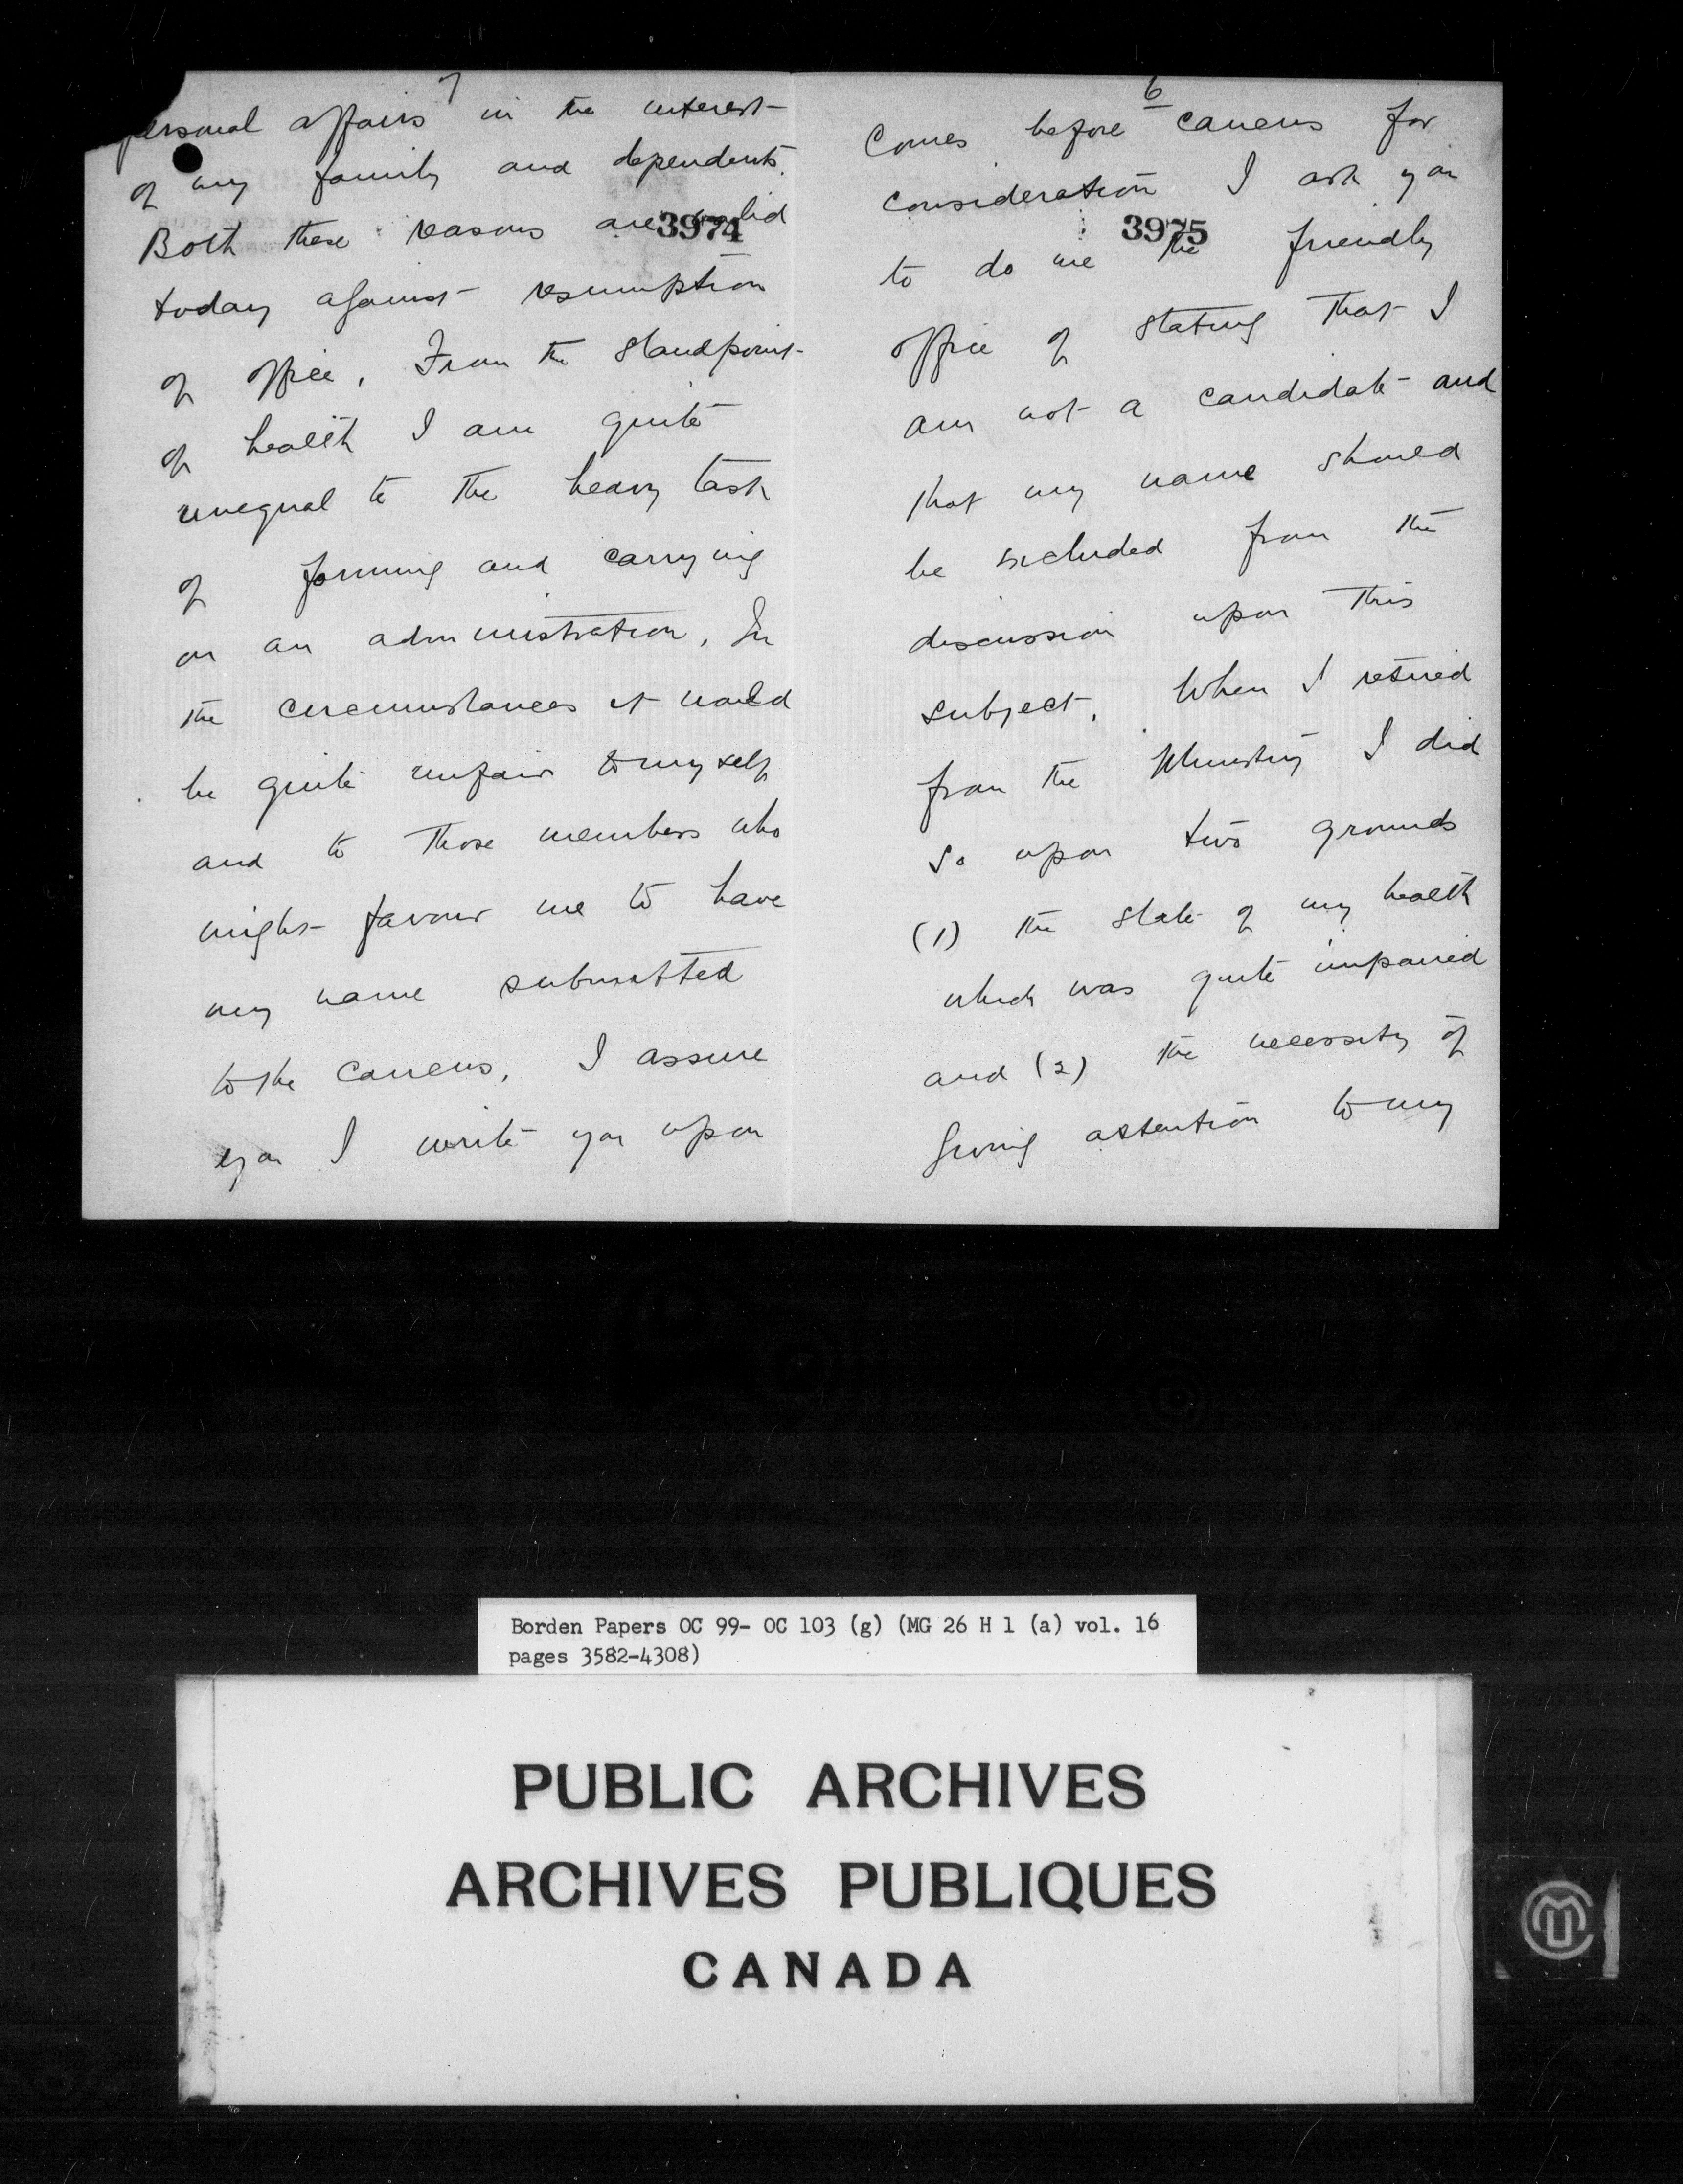 7
personal affairs in the interest
of my family and dependents.
Both these reasons are valid
3974
today against resumption
of office. From the standpoint
of health I am quite
unequal to the heavy task
of forming and carrying
on an administration. In
the circumstances it would
be quite unfair to myself
and to those members who
might favour me to have
my name submitted
to the caucus. I assure
you I write you upon
6
comes before caucus for
consideration I ask you
3975
to do me the friendly
office of stating that I
am not a candidate and
that my name should
be excluded from the
discussion upon this
subject. When I retired
from the Ministry I did
so upon two grounds
(1) the state of my health
which was quite impaired
and (2) the necessity of
giving attention to my
Borden Papers OC 99- OC 103 (g) (MG 26 H 1 (a) vol. 16
pages 3582-4308)
PUBLIC ARCHIVES
ARCHIVES PUBLIQUES
CANADA